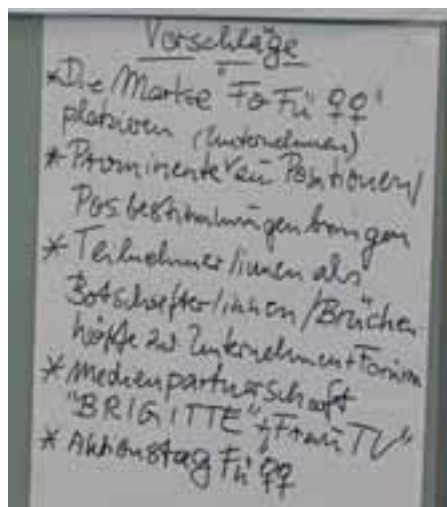 Vorschläge
* Die Marke "FoFü ♀♀"
platzieren (Unternehmen)
* Prominente zu Positionen/
Pos.bestimmungen bringen
* Teilnehmer/innen als
Botschafter/innen/Brücken
zu Unternehmen + Forum
* Medienpartnerschaft
"BRIGITTE" + "Frau TV"
* Aktionstag Fü ♀♀